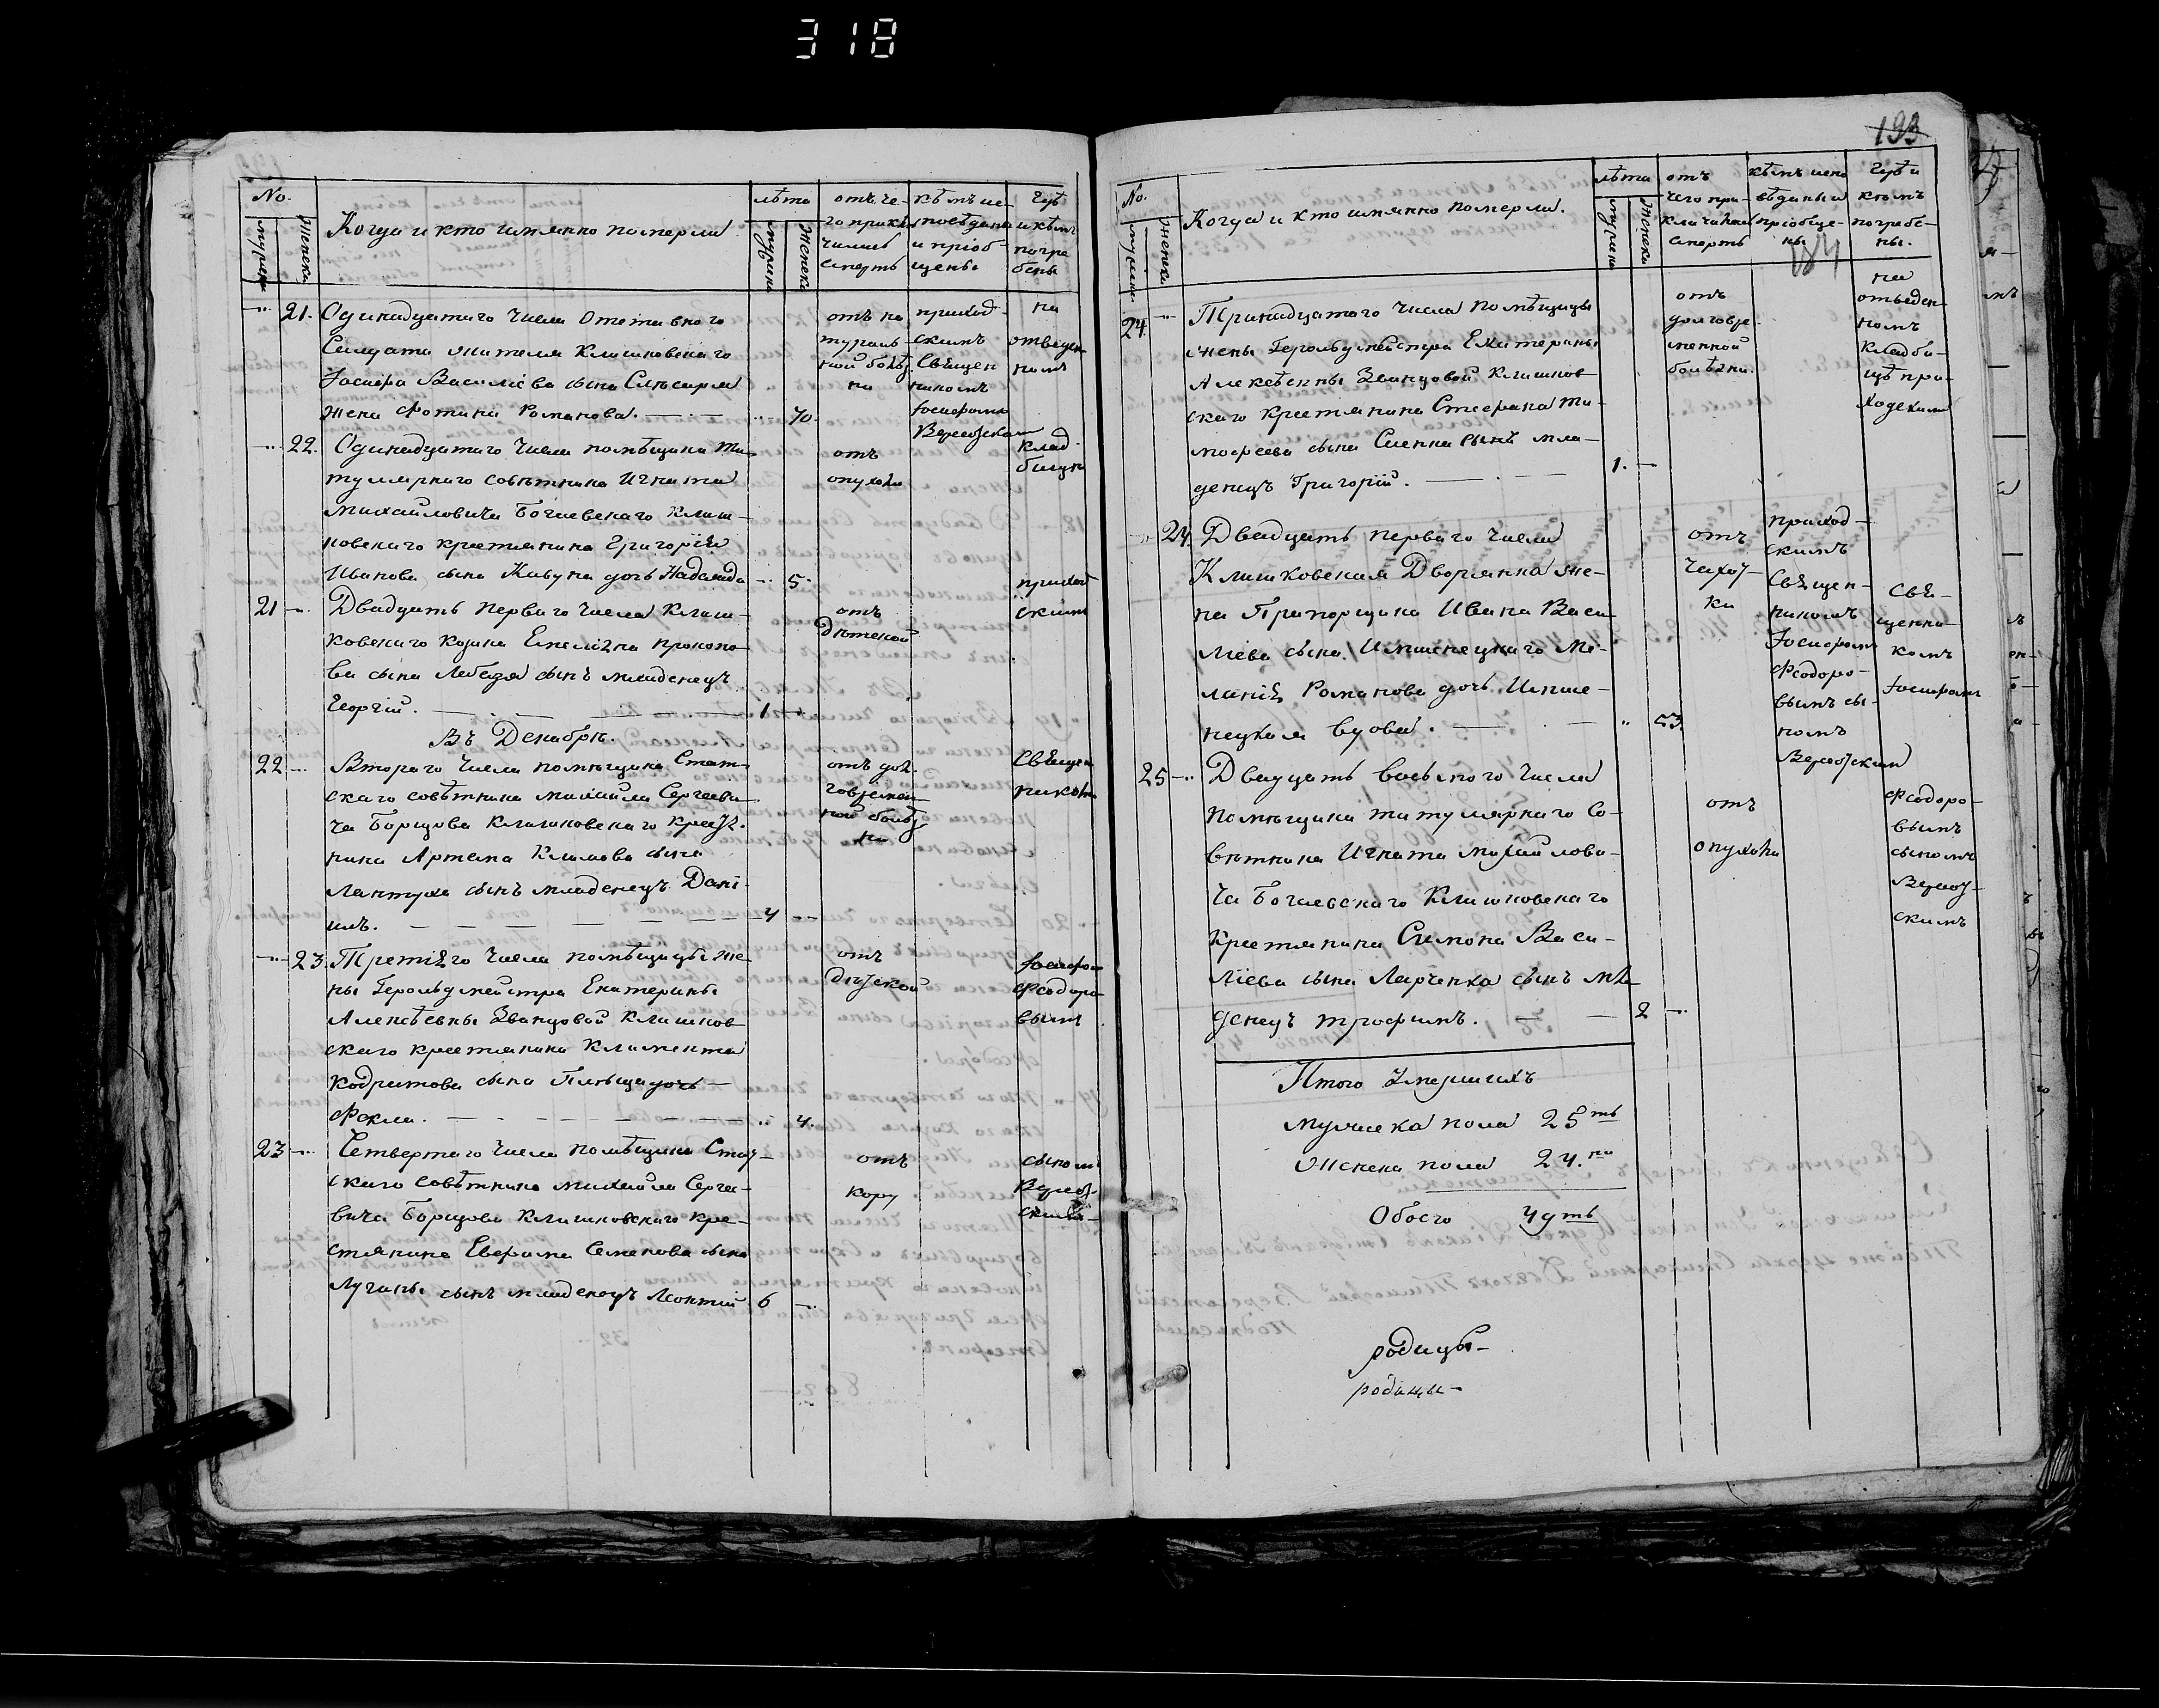 318
No.
мужеска
женска
Когда и кто имянно померли
лѣта
мужеска
женска
отъ че-
го приклю
чилась
смерть
кѣмъ ис-
повѣданы
и пріоб-
щены
гдѣ
и кѣмъ
погре
бены
21. Одинадцатаго числа Отставного
Солдата жителя Клишковскаго
Іосифа Василіева сына Слюсаря
жена Фотина Романова. 70.
отъ на
тураль
ной болѣз
ни
приход
скимъ
Священ
никомъ
Іосифомъ
на
отведен
номъ
22. Одинадцатаго числа помѣщика Ти
тулярнаго совѣтника Игната
Михайловича Богаевскаго Клиш
ковскаго крестянина Григорія
Иванова сына Кавуна дочь Надежда 5.
отъ
опухоли
клад
бищи
приход
скимъ
21 Двадцать перваго числа Клиш
ковскаго козака Емеліяна Прокопо
ва сына Лебедя сынъ младенецъ
Георгій. 1
отъ
дѣтской
Въ Декабрѣ.
22 Втораго числа помѣщика Стат
скаго совѣтника Михайла Сергееви
ча Борщова Клишковскаго крестя
нина Артема Климова сына
Лантуха сынъ младенецъ Дані
илъ. 4
отъ дол
говремен
ной болѣз
ни
Священ
никомъ
23. Третіяго числа помѣщицы же
ны Герольдмейстра Екатерины
Алексѣевны Званцовой Клишков
скаго крестянина Климента
Кодратова сына дочь
Фекла. 4.
отъ
дѣтской
Іосифом
Феодоро
вымъ
23 Четвертаго числа помѣщика Стат
скаго совѣтника Михайла Сергее
вича Борщова Клишковскаго кре
стянина Евфима Семенова сына
Лучины сынъ младенецъ Леонтій 6
отъ
кору
сыном
193
No.
мужеска
женска
Когда и кто имянно померли.
лѣта
мужеска
женска
отъ
чего при
ключилась
смерть
кѣмъ испо
вѣданы и
пріобще
ны
гдѣ и
кѣмъ
погребе
ны.
184
24. Тринадцатаго числа помѣщицы
жены Герольдмейстра Екатерины
Алексѣевны Званцовой Клишков
скаго крестянина Стефана Ти
мофеева сына Сленка сынъ мла
денецъ Григорій. 1.
отъ
долговре
менной
болѣзни.
на
отведен
номъ
кладби
щѣ при
ходским
24. Двадцать перваго числа
Клишковская Дворянка же
на Прапорщика Ивана Васи
лiева сына Имшенецкаго Ме
ланія Романова дочь Имше
нецкая вдова. 53.
отъ
чахот
ки
приход
скимъ
Священ
никомъ
Іосифомъ
Феодоро
вымъ сы
номъ
Свя
щенни
комъ
Іосифомъ
25 Двадцать восьмого числа
помѣщика титулярнаго со
вѣтника Игната Михайлови
ча Богаевскаго Клишковскаго
крестянина Симона Васи
лiева сына Ларченка сынъ мла
денецъ Трофимъ. 2
отъ
опухоли
Феодоро
вымъ
сыномъ
Итого умершихъ
мужеска пола 25ть
женска пола 24.ри
Обоего 49ть
родицы
родицы